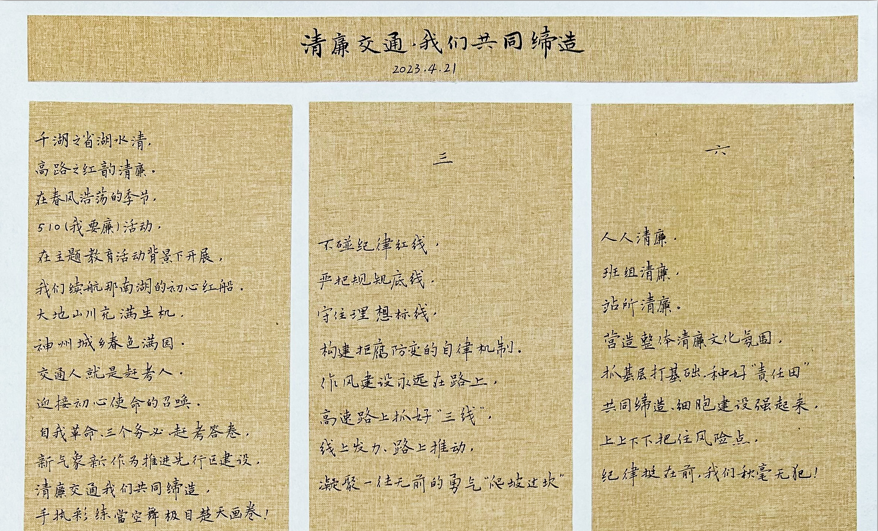 清廉交通·我们共同缔造
2023.4.21
千湖之省湖水清，
高路之红韵清廉。
在春风浩荡的季节，
510（我要廉）活动，
在主题教育活动背景下开展，
我们续航那南湖的初心红船。
大地山川充满生机，
神州城乡春色满园。
交通人就是赶考人，
迎接初心使命的召唤。
自我革命、三个务必、赶考答卷，
新气象新作为推进先行区建设，
清廉交通我们共同缔造，
手执彩练当空舞极目楚天画卷！
三
不碰纪律红线，
严把规矩底线。
守住理想标线，
构建拒腐防变的自律机制。
作风建设永远在路上，
高速路上抓好“三线”，
线上发力、路上推动，
凝聚一往无前的勇气“爬坡过坎”
六
人人清廉，
班组清廉，
站所清廉。
营造整体清廉文化氛围，
抓基层打基础、种好“责任田”
共同缔造、细胞建设强起来，
上上下下把住风险点，
纪律挺在前，我们秋毫无犯！